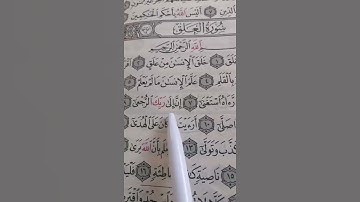 الَّذِينَ ۝٧ أَلَيْسَ اللَّهُ بِأَحْكَمِ الْحَاكِمِينَ ۝٨
سُورَةُ الْعَلَقِ
اللَّهِ الرَّحْمَٰنِ الرَّحِيمِ
خَلَقَ ۝١ خَلَقَ الْإِنسَٰنَ مِنْ عَلَقٍ ۝٢
بِالْقَلَمِ ۝٤ عَلَّمَ الْإِنسَٰنَ مَا لَمْ يَعْلَمْ ۝٥
اسْتَغْنَىٰ ۝٧ إِنَّ إِلَىٰ رَبِّكَ الرُّجْعَىٰ ۝٨
صَلَّىٰ ۝١٠ أَرَءَيْتَ كَانَ عَلَى الْهُدَىٰ
وَتَوَلَّىٰ ۝١٣ بِأَنَّ اللَّهَ يَرَىٰ
۝١٥ نَاصِيَةٍ خَاطِئَةٍ ۝١٦